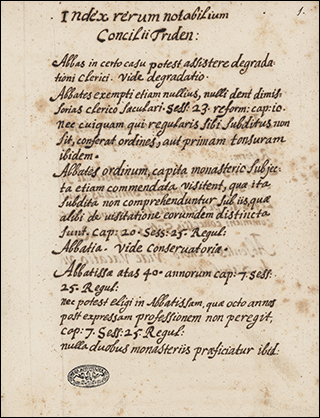 1.
Index rerum notabilium
Concilii Triden:
Abbas in certo casu potest assistere degrada
tioni clerici. Vide degradatio.
Abbates exempti etiam nullius, nulli dent dimis
sorias clerico sæculari. Sess: 23. reform: cap: 10.
nec cuiquam qui regularis sibi subditus non
sit, conferat ordines, aut primam tonsuram
ibidem.
Abbates ordinum, capita monasteria subjec
ta etiam commendata visitent, quæ ita
subdita non comprehenduntur sub iis, quæ
alibi de visitatione eorumdem distincta
sunt. Cap: 20. Sess: 25. Regul:
Abbatia. Vide Conservatoriæ.
Abbatissæ ætas 40. annorum cap: 7. Sess:
25. Regul:
nec potest eligi in Abbatissam, quæ octo annos
post expressam professionem non peregit,
Cap: 7. Sess: 25. Regul:
nulla duobus monasteriis præficiatur ibid: